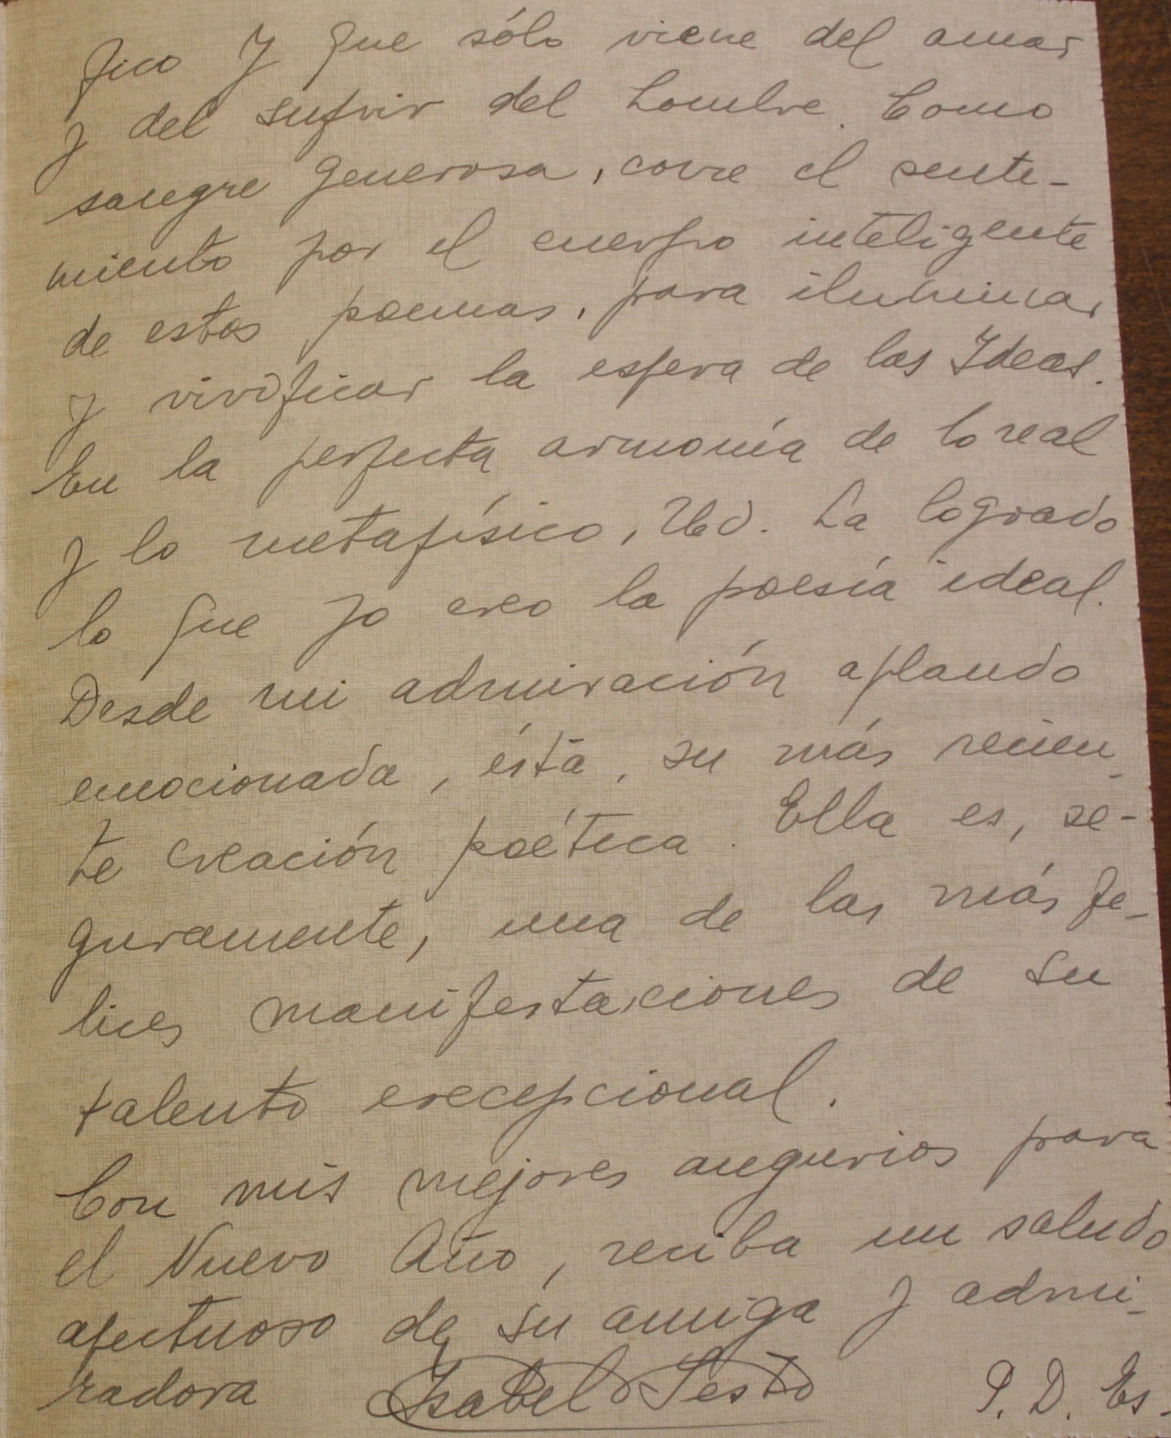 fico y que sólo viene del amar
y del sufrir del hombre. Como
sangre generosa, corre el senti-
miento por el cuerpo inteligente
de estos poemas, para iluminar
y vivificar la esfera de las Ideas.
En la perfecta armonía de lo real
y lo metafísico, Ud. ha logrado
lo que yo creo la poesía ideal.
Desde mi admiración aplaudo
emocionada, ésta, su más recien-
te creación poética. Ella es, se-
guramente, una de las más fe-
lices manifestaciones de su
talento excepcional.
Con mis mejores augurios para
el Nuevo Año, reciba un saludo
afectuoso de su amiga y admi-
radora Isabel Sesto P. D. Es-